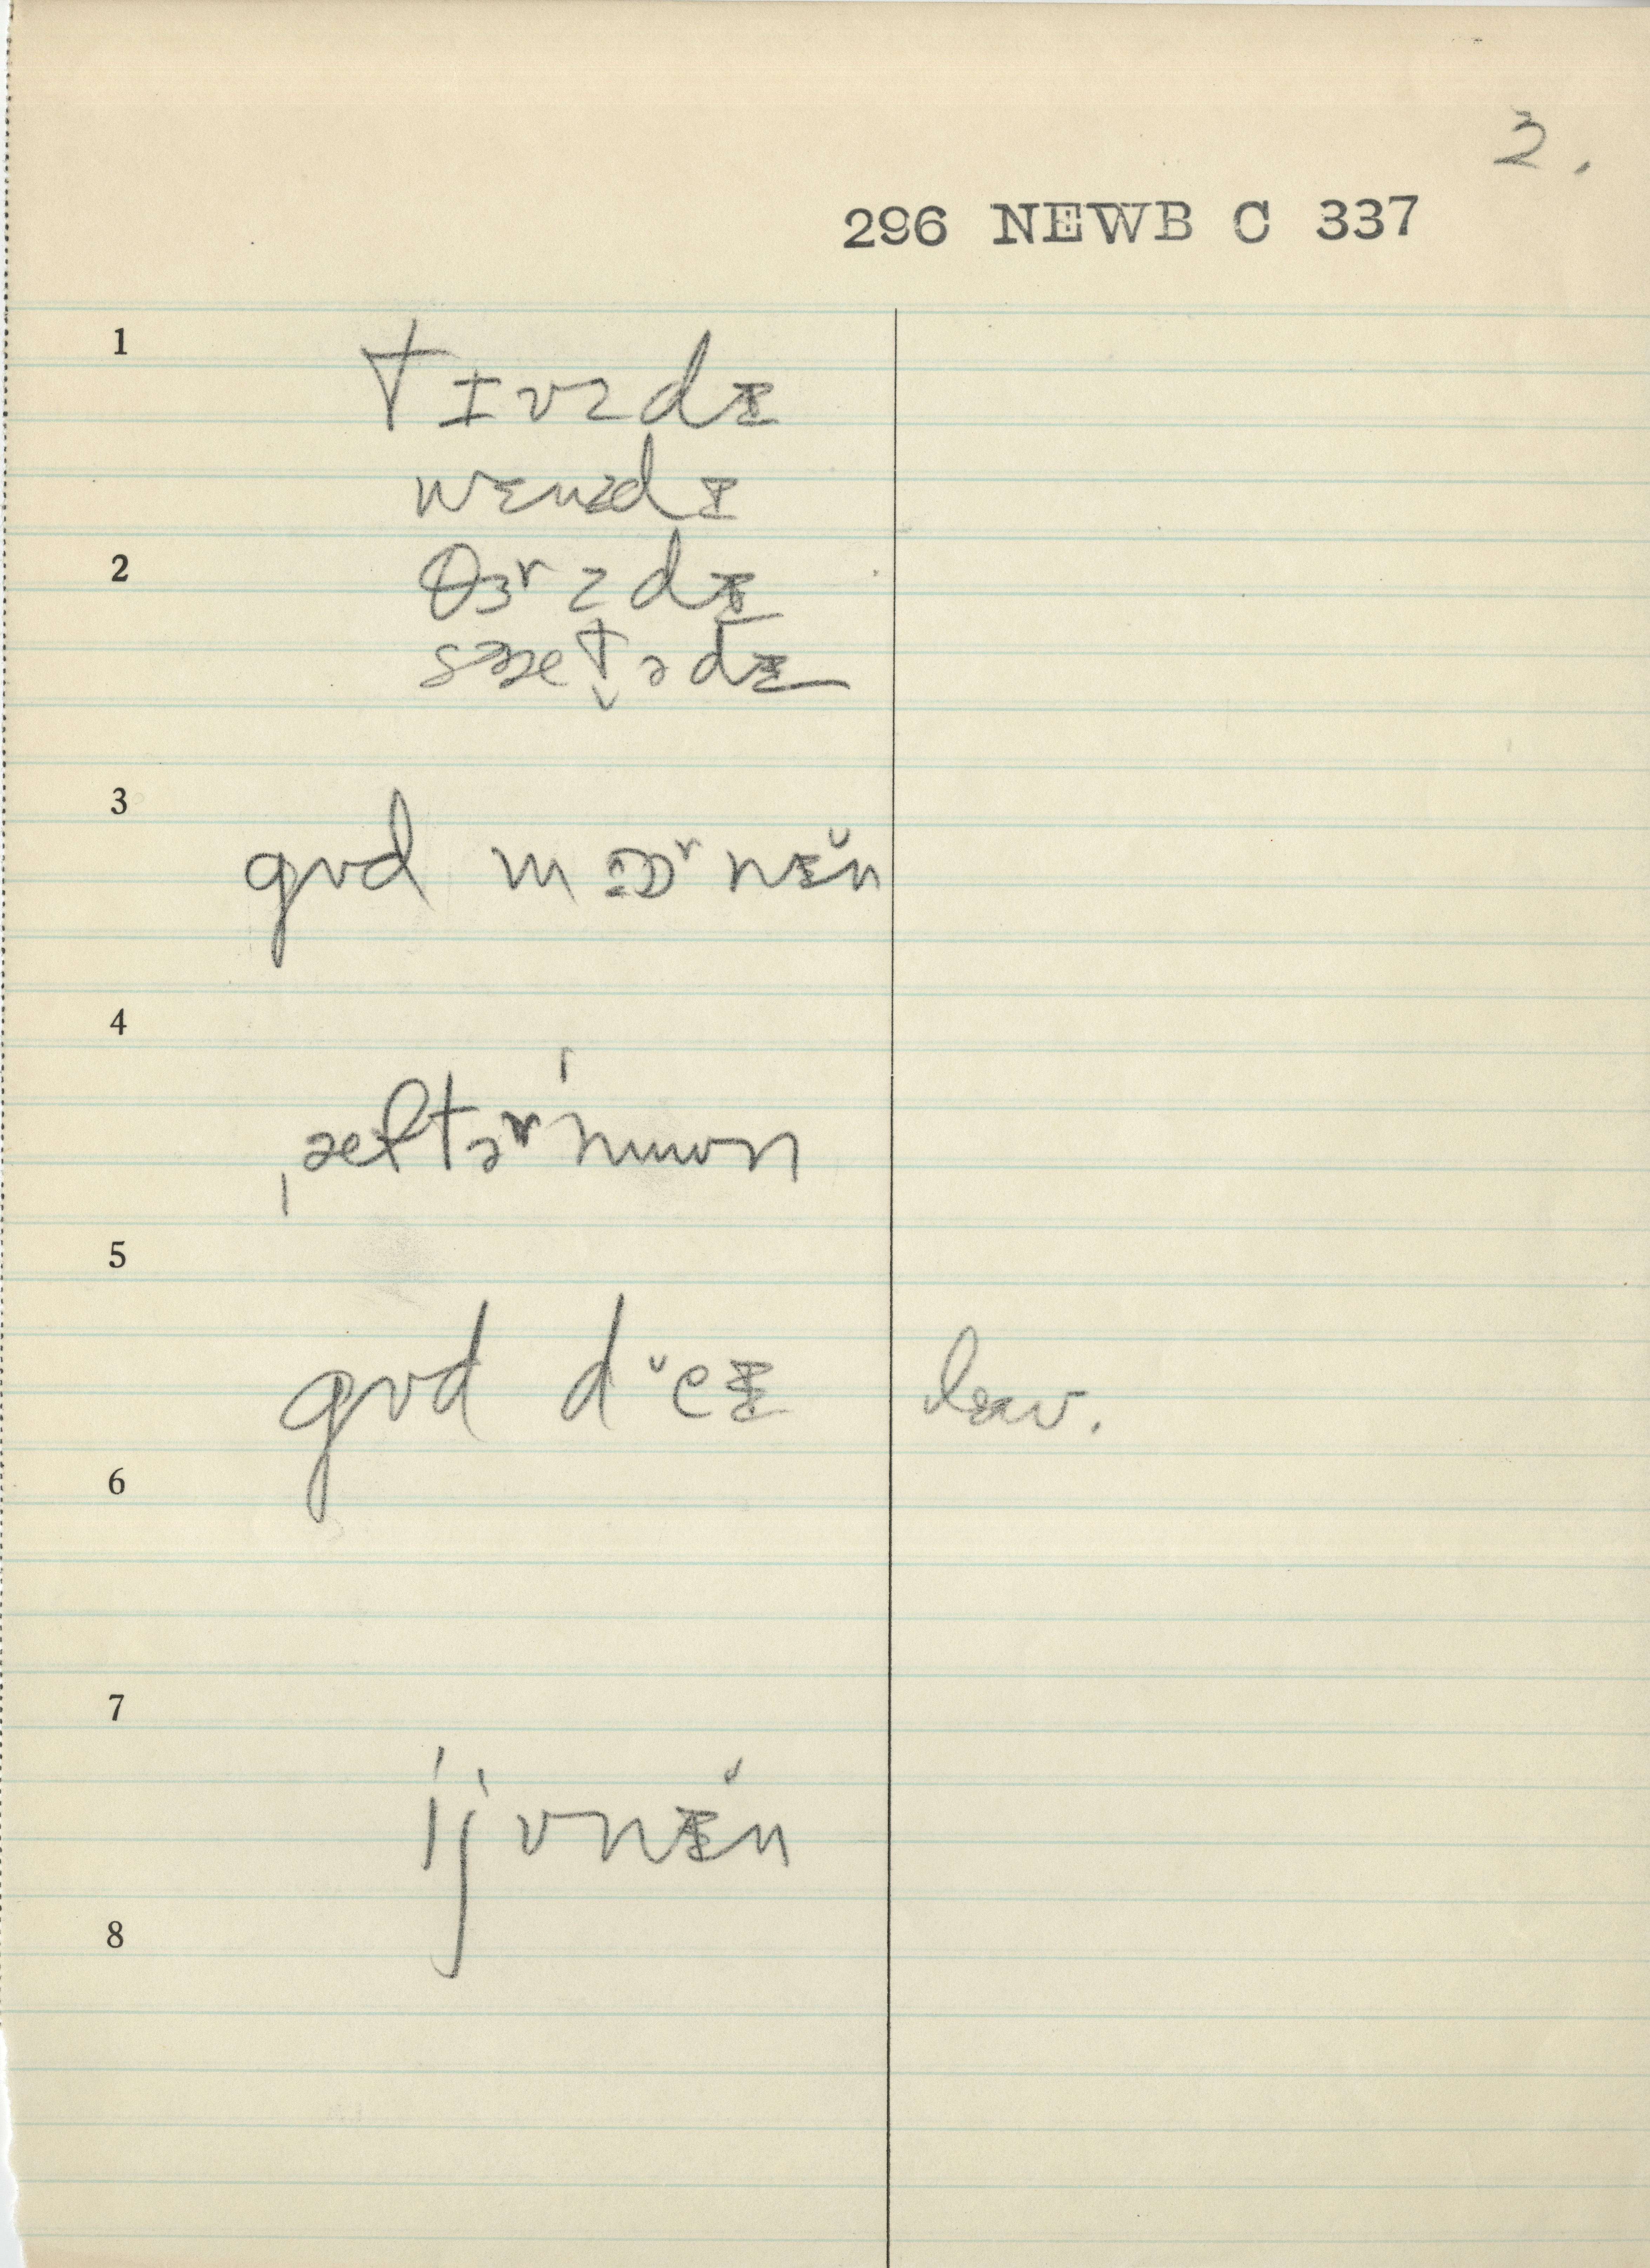 2.
296 NEWB C 337
1
tɪʊzdɪ
wɛnzdɪ
2
θɜʳzdɪ
sæt̬ədɪ
3
gʊd mɔɒʳnɪ̆n
4
ˌæftəʳˈnuʊn
5
gʊd d ̆eɪ
6
7
ˈijvnɪ̆n
8